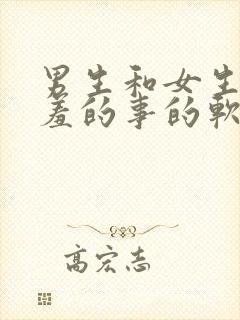 男生和女生
羞的事的軟
高宏志